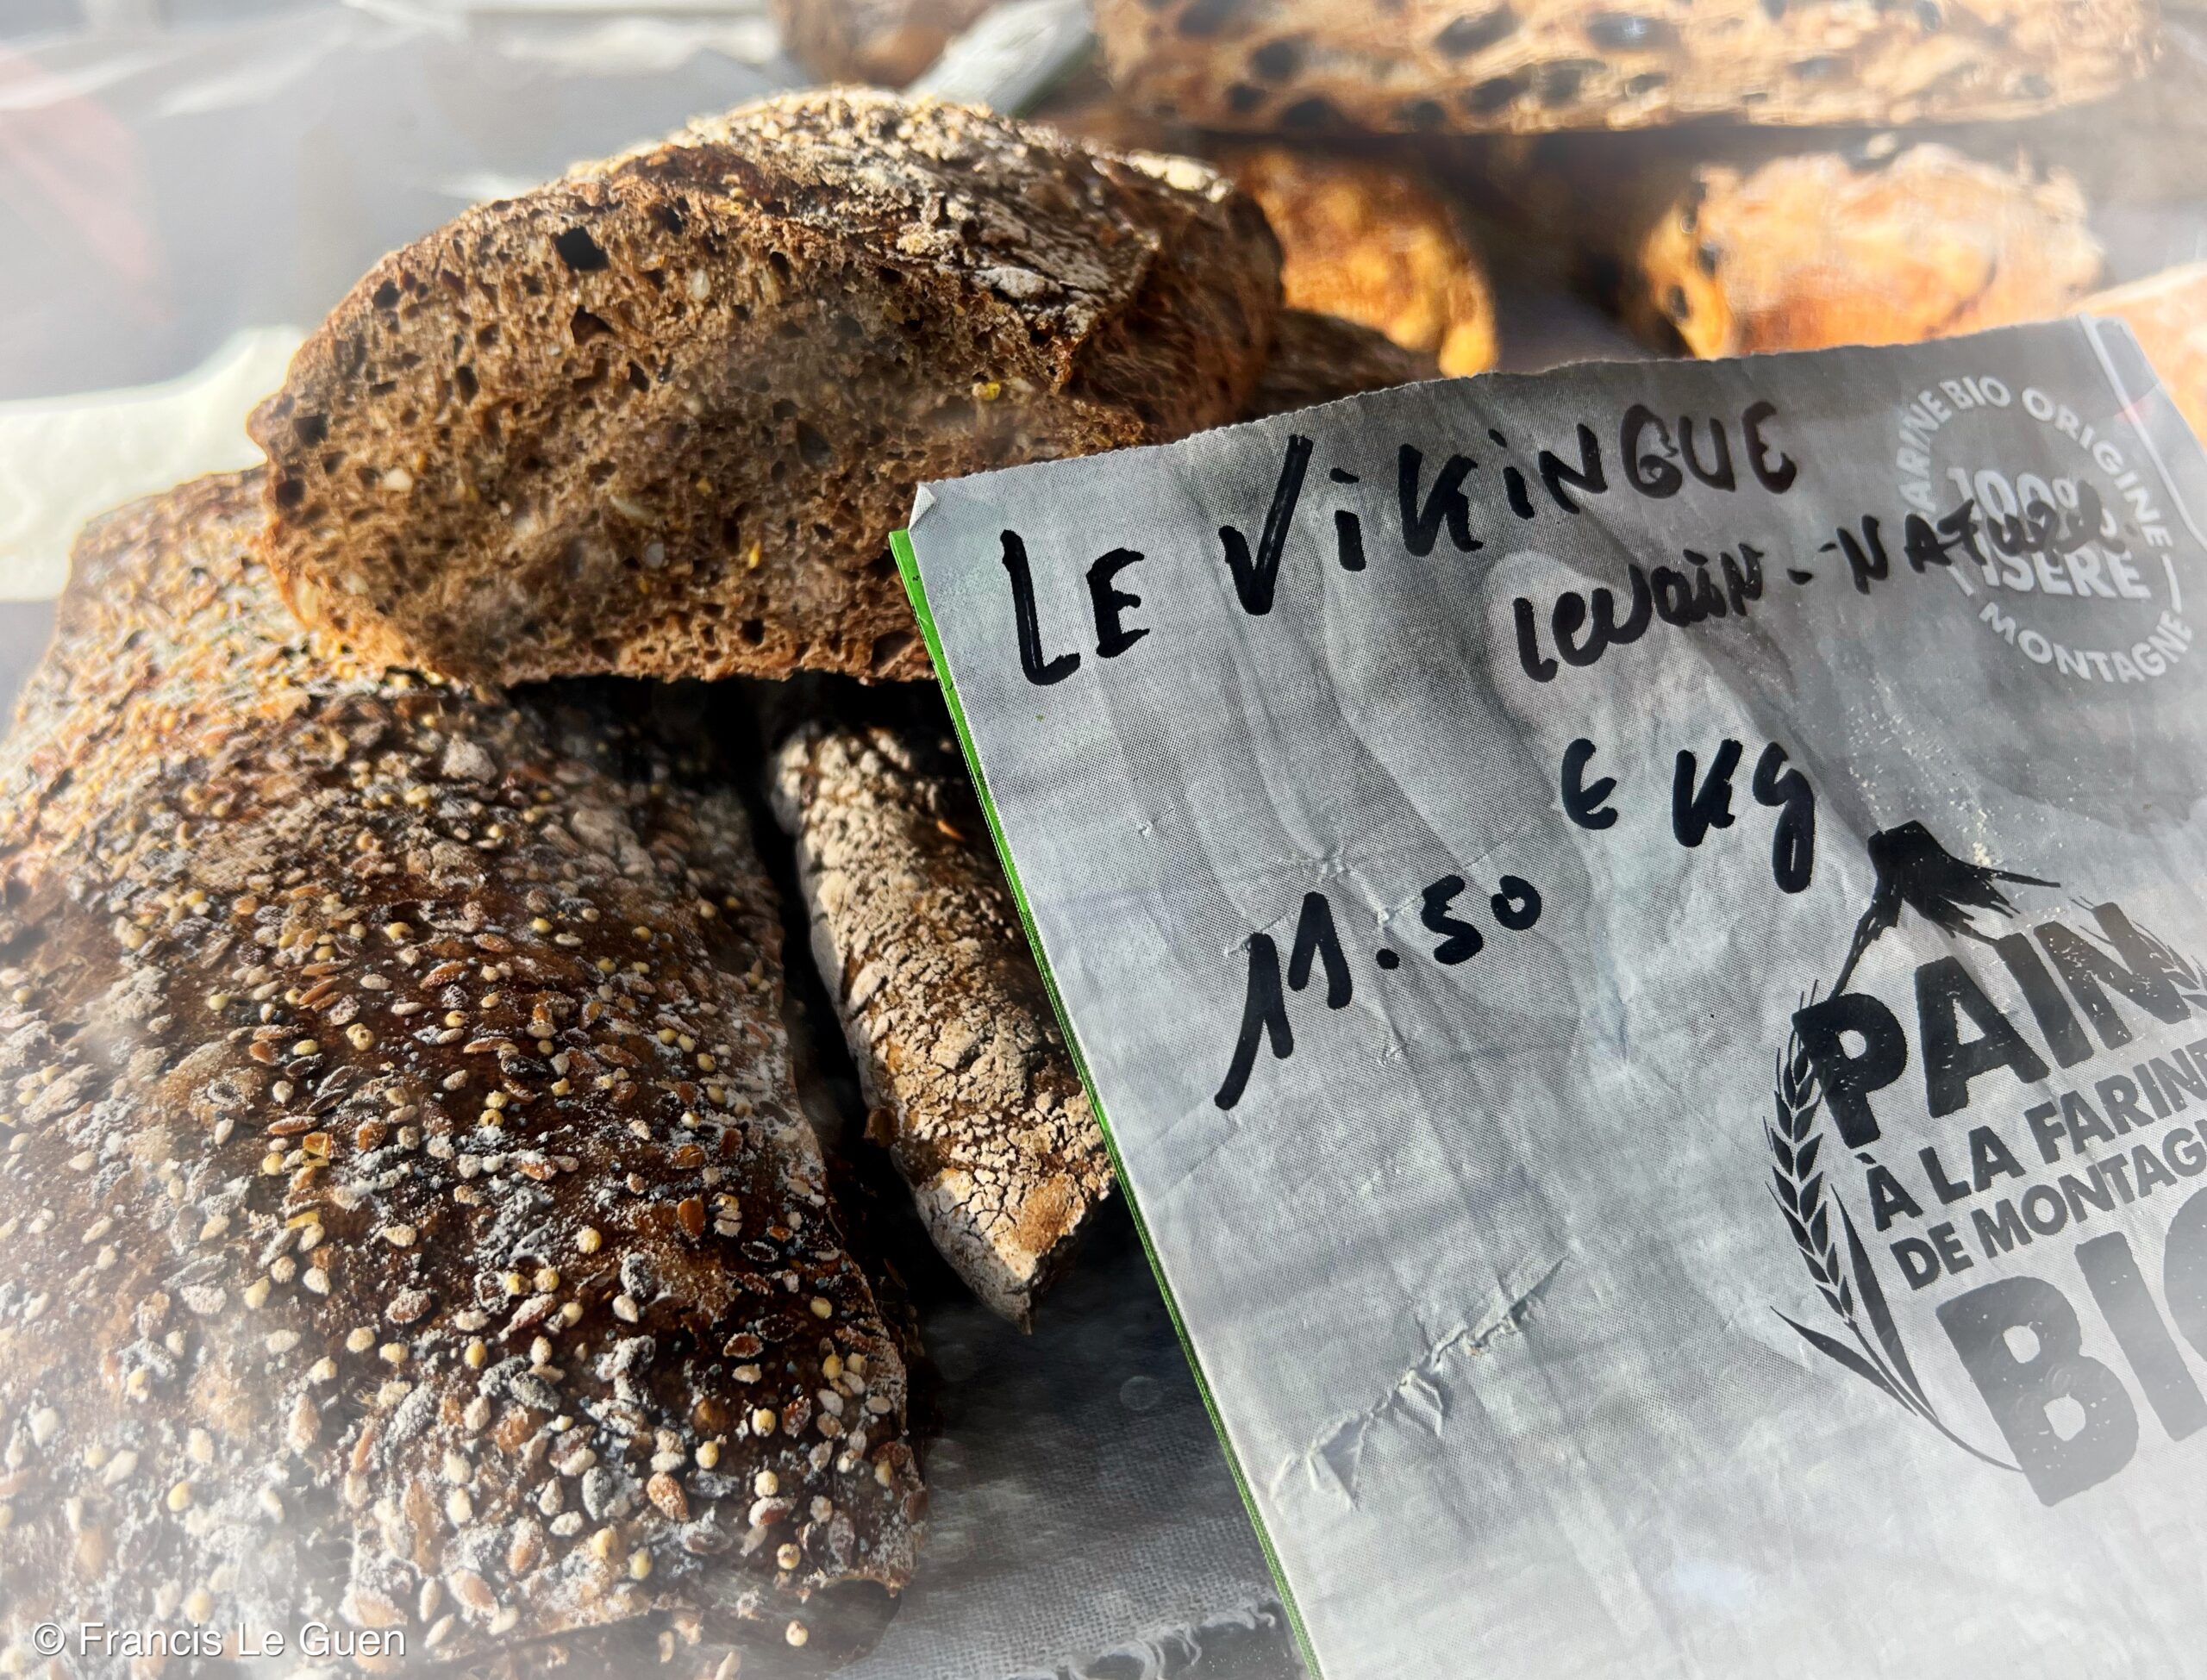 LE ViKiNGUE
FARINE BIO ORIGINE
100%
ISÈRE
MONTAGNE
levain - NAturel
€ Kg
11.50
PAIN
À LA FARINE
DE MONTAGNE
BIO
© Francis Le Guen